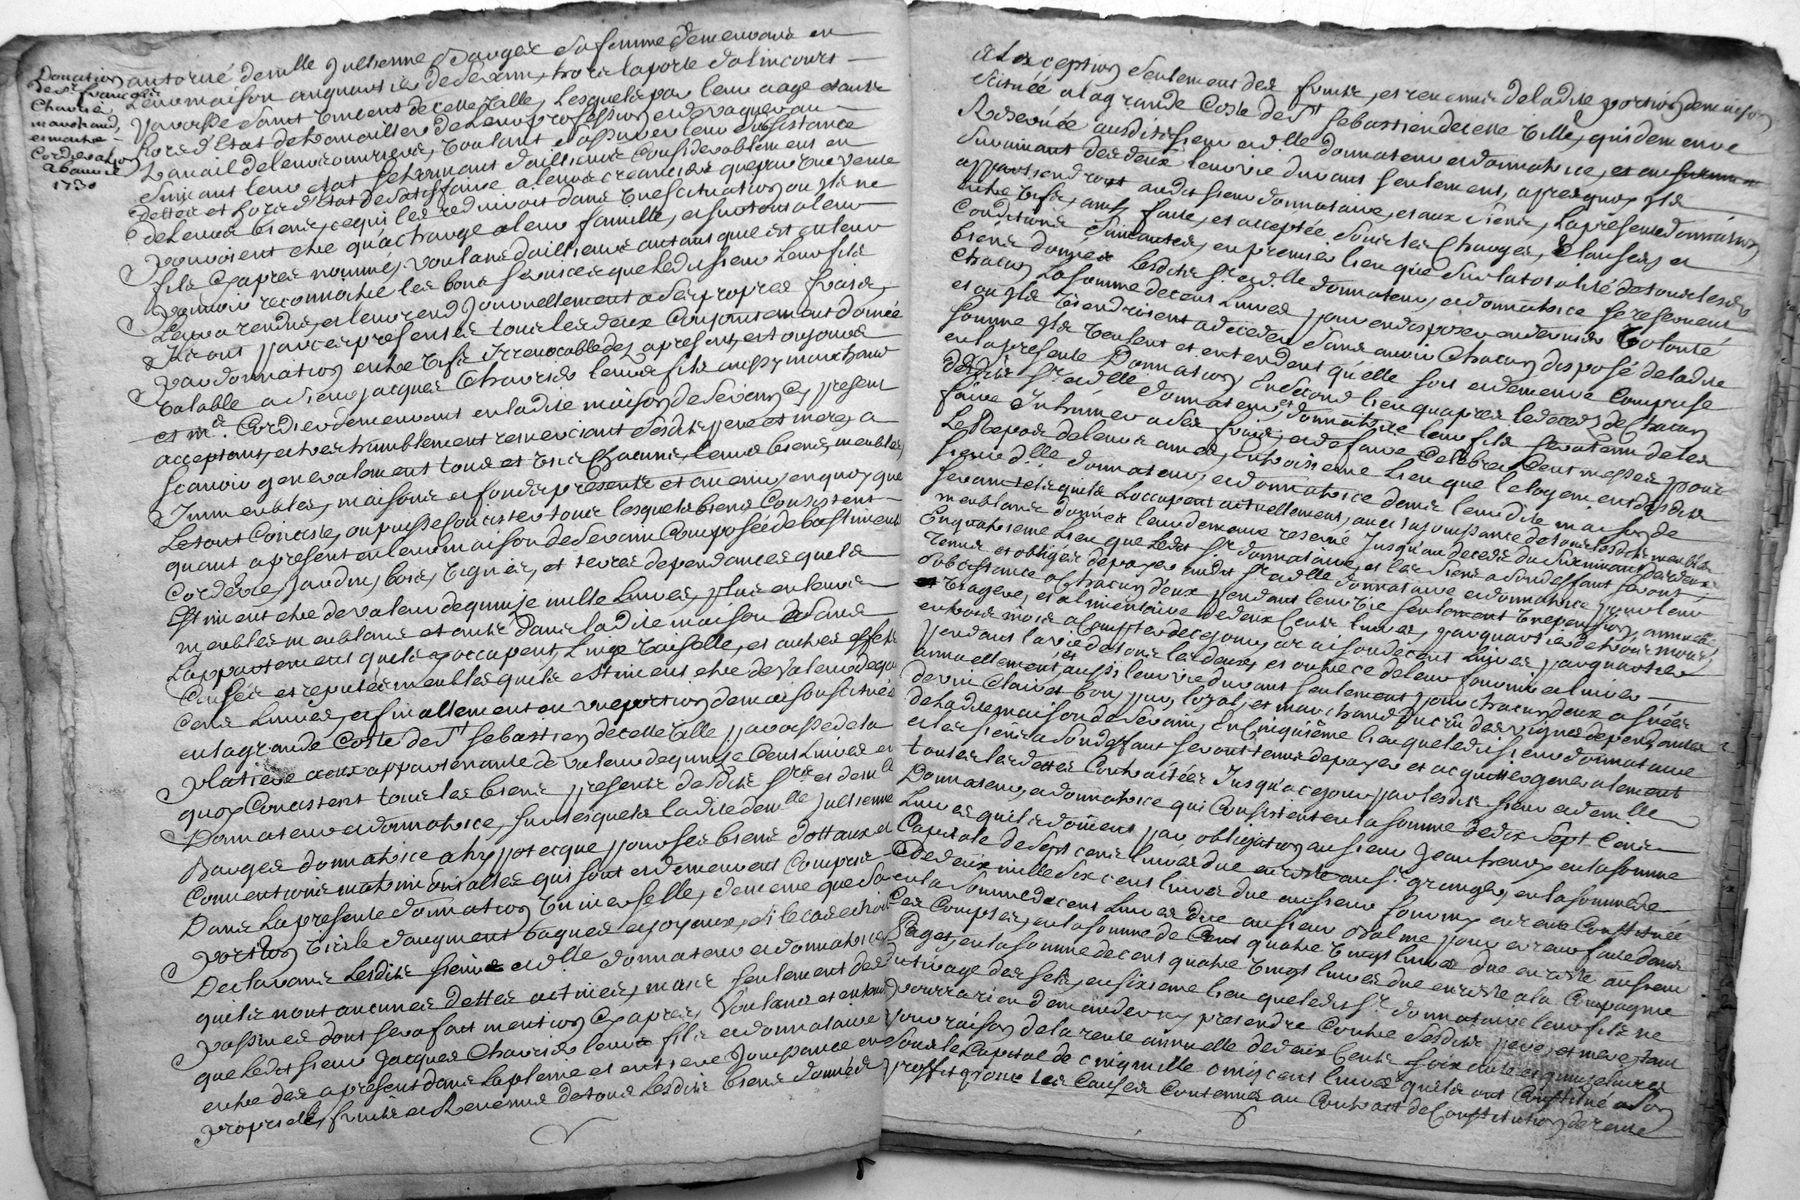 Donation
de sr françois
Chavrier
marchand,
et maitre
Cordier a lyon
1730
autorizé demlle Jullienne Bauger sa femme demeurant en
Leur maison au quartier de Serin, hors la porte d'alincourt
paroisse saint Vincent de cette Ville, Lesquels par leur aage etant
hors d'Etat de travailler de Leur profession et de vaquer au
travail de leurs ouvriers, Voulant s'assurer leur subsistance
suivant leur etat se trouvant d'ailleurs Considerablement en
dettes et hors d'Etat de satisfaire a leurs creanciers que par une vente
de Leurs biens, ce qui les reduiroit dans une situation ou ils ne
pouroient etre qu'a charge a leur famille, et surtout a leur
fils cy apres nommé, voulant d'ailleurs autant que est en leur
pouvoir reconnoitre les bons services que Ledit sieur Leur fils
Leur a rendus, et leur rend Journellement a ses propres fraix,
Ils ont par ces presentes tous les deux Conjointement donné
par donnation entre Vifs Irrevocable des apresent, et toujours
Valable a sieur jacques Chavrier leur fils aussy marchand
et me Cordier demeurant en ladite maison de Serin Cy present
acceptant, et tres humblement remerciant sesdits pere et mere, a
scavoir generalement tous et Uns Chacuns, leurs biens, meubles,
Immeubles, maisons et fonds presents et avenir, en quoy que
Le tout Consiste, ou puisse Consister tous lesquels biens Consistent
quant apresent en leur maison de Serin Composée de bastiments
Corderie, Jardin, bois, Vignes, et terres dependances qu'ils
Estiment etre de valeur de quinze mille Livres, plus en leurs
meubles meublants et autres dans ladite maison et dans
L'appartement qu'ils y occupent, Linge Vaisselle, et autres effets
Censés et reputés meubles qu'ils estiment etre de Valeur de
Cent Livres, et finallement en une portion de maison située
en la grande Coste de St Sebastien de cette Ville paroisse de la
platiere a eux appartenante de valeur de quinze Cent Livres en
quoy Consistent tous les biens presents desdits srs et demlle
Donnateur et donnatrice, sur lesquels ladite demlle Jullienne
Bauger donnatrice a hypotecque pour ses biens dottaux et
Conventions matrimonialles qui sont et demeurent Compris
Dans La presente donnation Universelle, de meme que sa
portion Virile d'augment bagues et joyaux, si le cas echoit
Declarants Lesdits sieur et dlle donnateur et donnatrice
qu'ils n'ont aucunes dettes actives, mais seulement des
passives dont sera fait mention Cy apres, Voulant et entend
que Ledit sieur Jacques Chavrier leur fils et donnataire
entre des apresent dans La pleine et entiere Jouissance en
proprieté, fruits et Revenus de tous Lesdits biens donnés
a L'exception seulement des fruits, et revenus de ladite portion de maison
située a la grande Coste de St Sebastien de cette Ville, qui demeure
Reservée ausdits sieur et dlle donnateur et donnatrice, et au
survivant des deux leur vie durant seulement, apres quoy ils
appartiendront audit sieur donnataire, et aux siens, La presente donnation
entre Vifs, ainsy faite, et acceptée sous les Charges, Clauses, et
Conditions suivantes, en premier lieu que sur la totalité de tous lesdits
biens donnés Lesdits sr et dlle donnateur, et donnatrice se reservent
Chacun La somme de cent Livres pour en disposer en derniere Volonté
et ou ils Viendroient a deceder sans avoir Chacun disposé de ladite
somme ils Veulent et entendent qu'elle soit et demeure Comprise
en la presente Donnation, En second lieu qu'apres le deces de Chacun
desdits sr et dlle donnateur et donnatrice leur fils sera tenu de les
faire Inhumer a ses fraix, et de faire Celebrer Cent messes pour
Le Repos de leurs ames, En troisieme Lieu que le logement desdits
sieur dlle donnateur, et donnatrice dans leurdite maison de
serin tel qu'ils L'occupent actuellement, avec la jouissance de tous lesdits meubles
meublants donnés leur demeure reservé Jusqu'au deces du survivant des deux
En quatrieme Lieu que Ledit sr donnataire, et les siens a son deffaut seront
tenus et obligés de payer audit sr et dlle donnateur et donnatrice pour leur
subsistance a chacun d'eux pendant leur Vie seulement Une pension, annuelle
et Viagere, et alimentaire de deux Cents Livres, par quartier de trois mois
en trois mois a Compter de ce jour, a raison de cent Livres par quartier
pendant la vie de tous les deux, et outre ce de leur fournir et livrer
annuellement et aussi leur vie durant seulement pour chacun d'eux a
de vin Clairet bon pur, loyal, et marchand du cru des vignes dependantes
de ladite maison de Serin, En Cinquieme lieu que ledit sieur donnataire
et les siens a son deffaut seront tenus de payer et acquitter generalement
toutes les dettes Contractées Jusqu'a ce jour par lesdits sieur et demlle
Donnateur, et donnatrice qui Consistent en la somme de dix sept Cent
Livres qu'ils doivent par obligation au sieur en la somme
Capitale de sept cents livres due en reste au sr en la somme de
deux mille six cens livres due au sieur en rente Constituée
en la somme de cens Livres due au sieur Dalme pour arreu faite dans
Les Comptes, en la somme de Cent quatre vingt livres due en reste au sieur
Paget, en la somme de cens quatre Vingt livres due en reste a la Compagnie
du tirage des sels, en sixieme lieu que ledit sr donnataire leur fils ne
pourra rien demander ny pretendre Contre sesdits pere, et mere, tant
pour raison de la rente annuelle de deux Cents soixante et quinze livres
sous le Capital de cinq mille cinq cent livres qu'ils ont Constitué a son
proffit pour les Causes Contenues au Contract de Constitution de rente